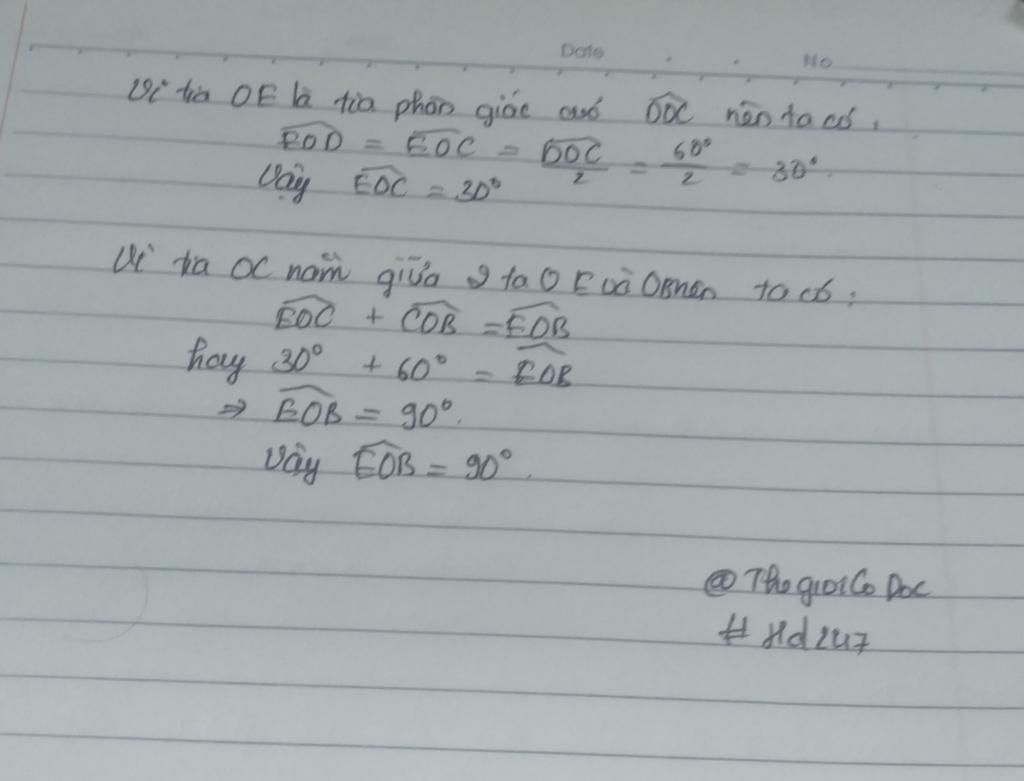 Date No
Vì tia OE là tia phân giác của DOC nên ta có:
EOD = EOC = DOC/2 = 60°/2 = 30°.
Vậy EOC = 30°
Vì tia OC nằm giữa 2 ta OE và OB nên ta có:
EOC + COB = EOB
hay 30° + 60° = EOB
⇒ EOB = 90°.
Vậy EOB = 90°.
@ThegioiCoDoc
#Hd247